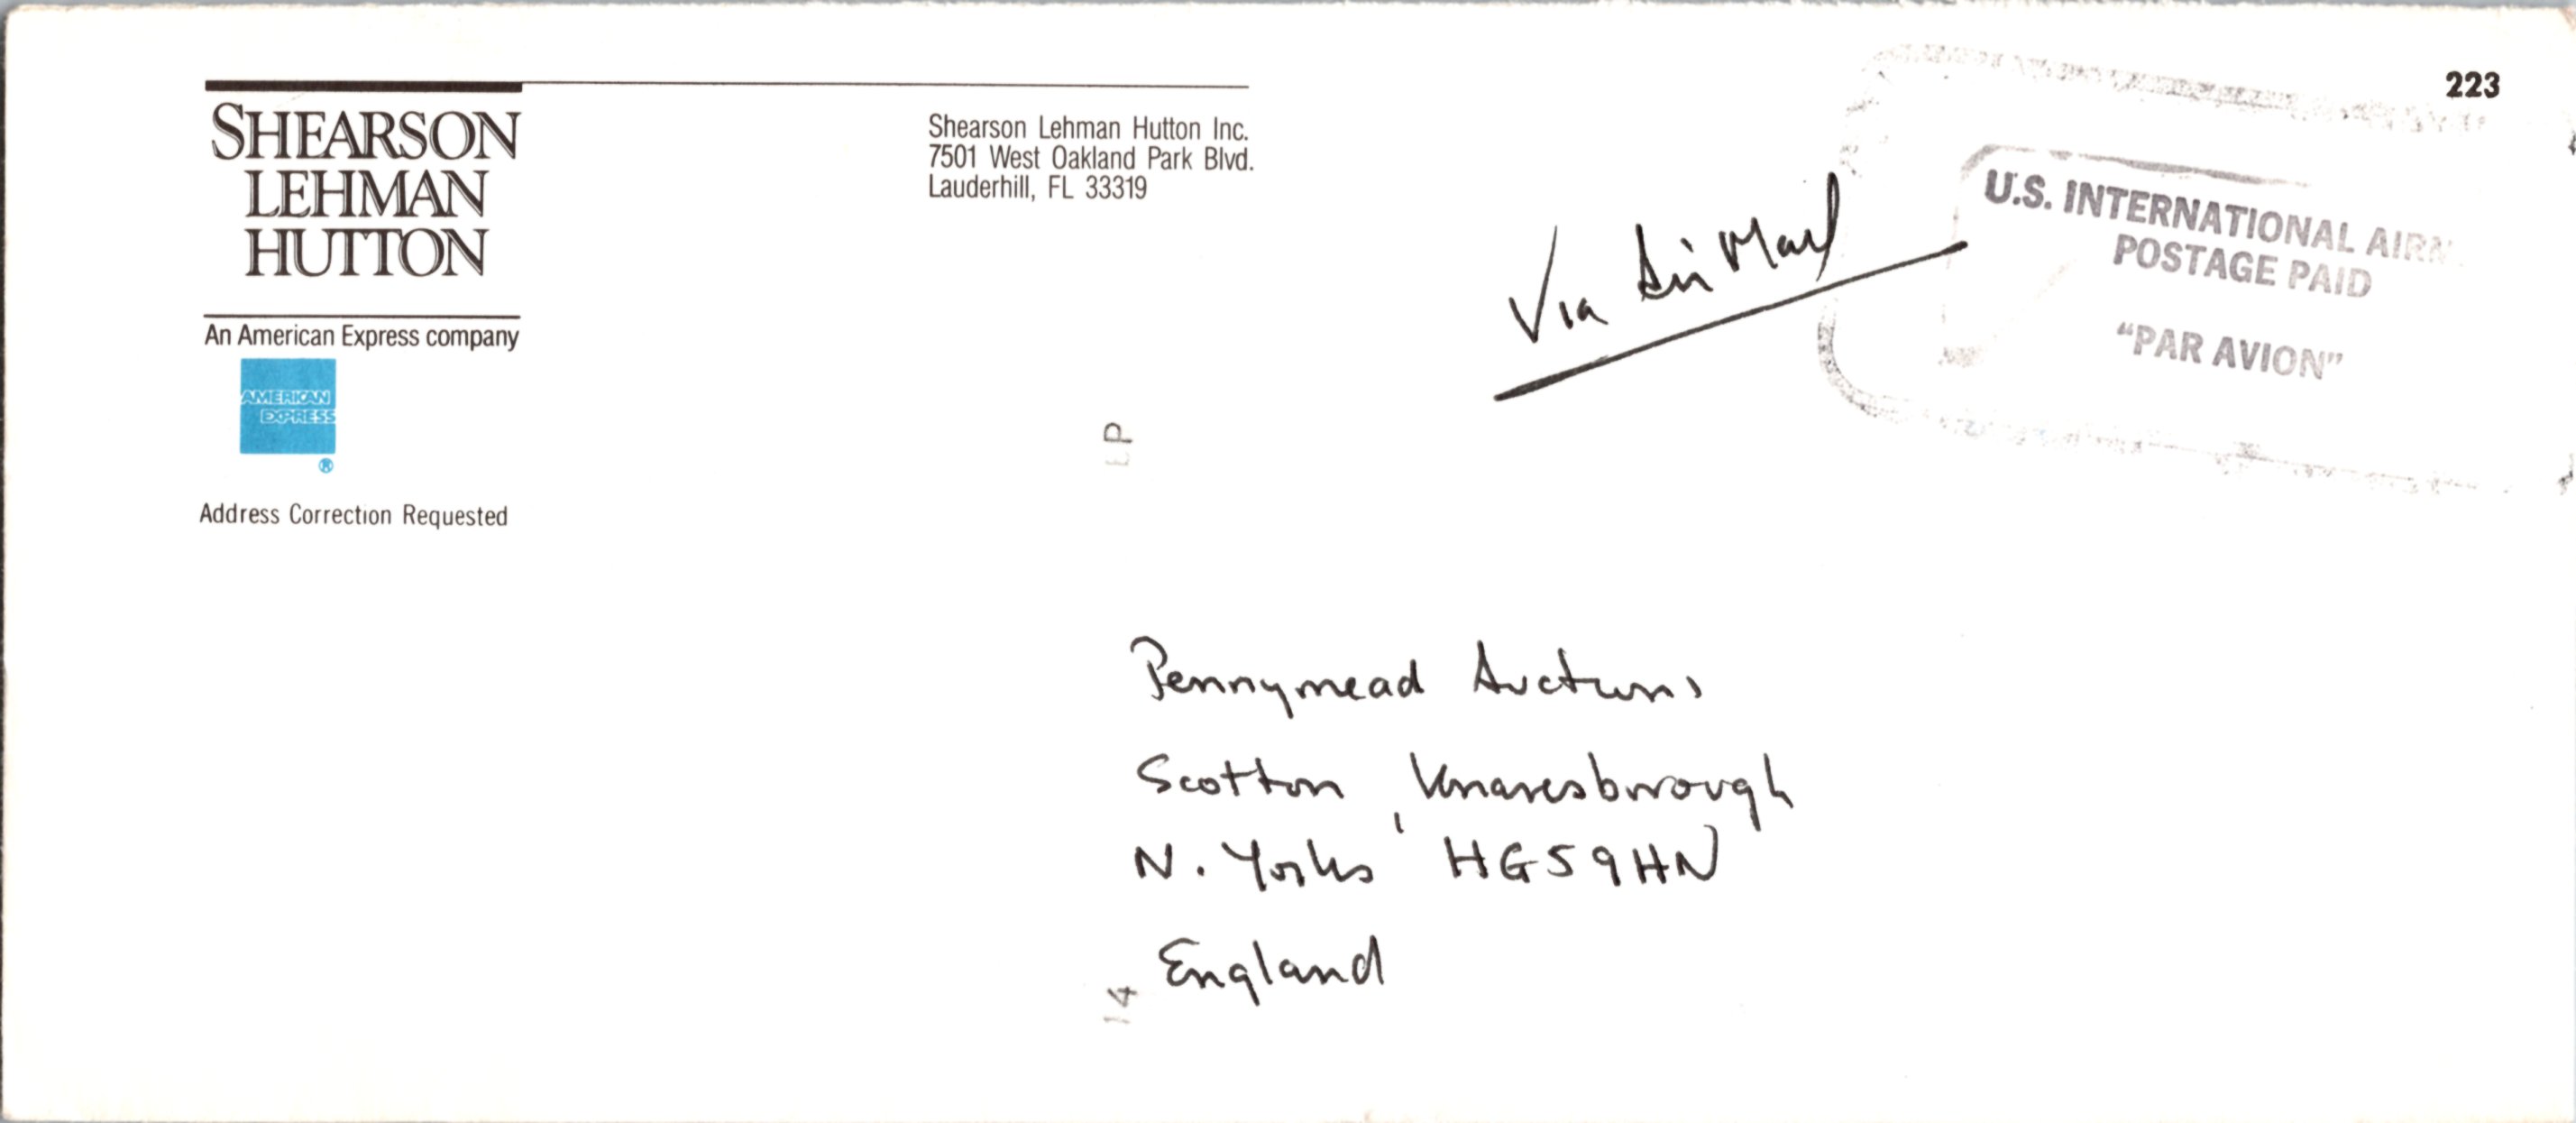 223
SHEARSON
LEHMAN
HUTTON
An American Express company
AMERICAN
EXPRESS
®
Address Correction Requested
Shearson Lehman Hutton Inc.
7501 West Oakland Park Blvd.
Lauderhill, FL 33319
Via Air Mail
U.S. INTERNATIONAL AIR
POSTAGE PAID
"PAR AVION"
LP
Pennymead Auctions
Scotton, Knaresborough
N. Yorks HG59HN
England
14